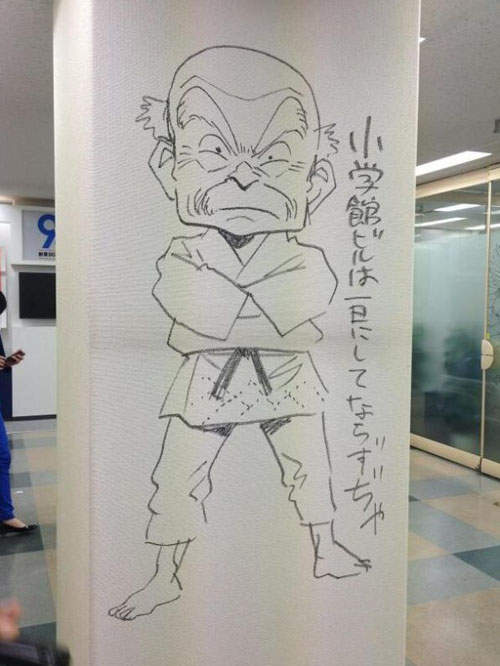 小学館ビルは一日にしてならずぢゃ
9